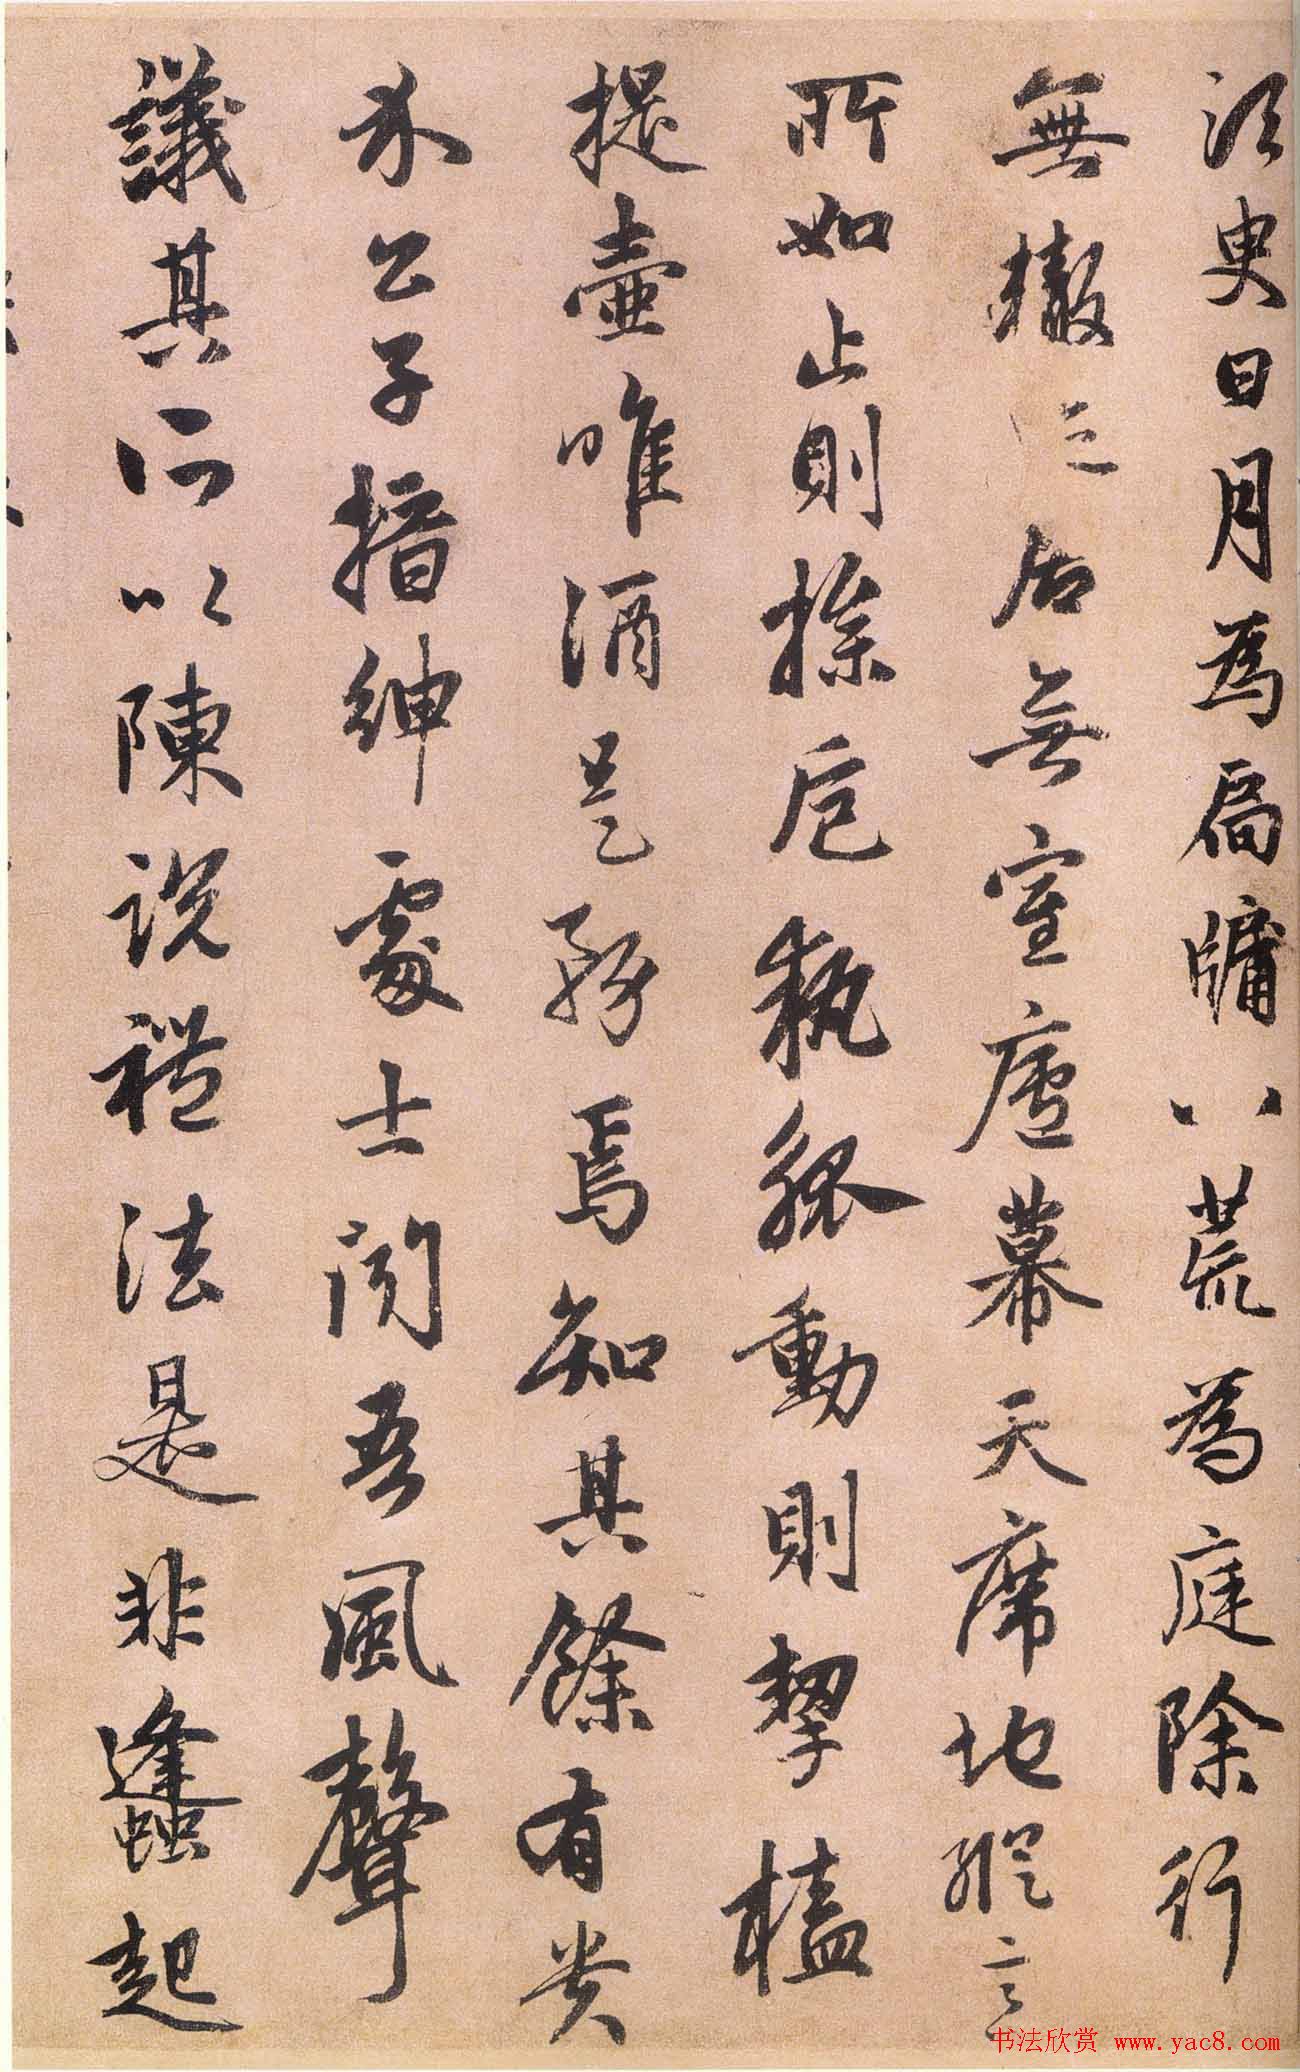 須臾日月為扃牖八荒為庭除行
無轍迹居無室廬幕天席地縱意
所如止則操卮執觚動則挈榼
提壺唯酒是務焉知其餘有貴
介公子搢紳處士聞吾風聲
議其所以陳說禮法是非蠭起
书法欣赏 www.yac8.com